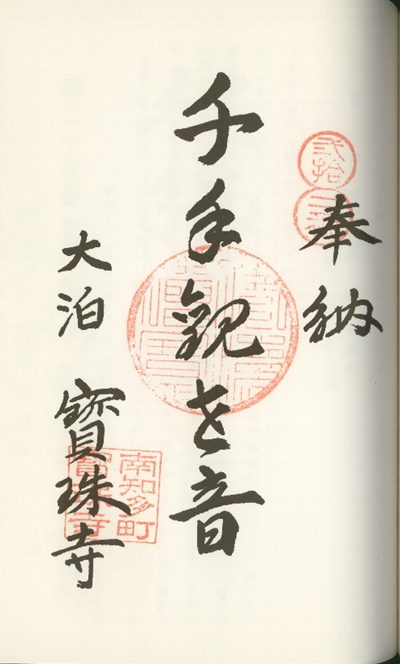 奉納
千手観世音
大泊 寳珠寺
弐拾
南知多町